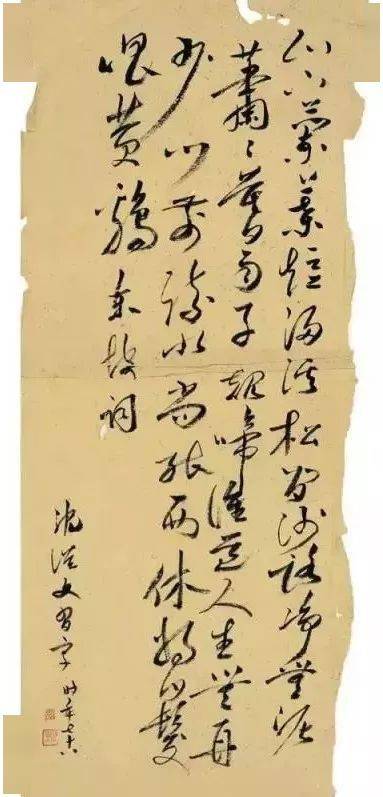 山下蘭芽短浸溪松間沙路净無泥
蕭〻暮雨子規啼誰道人生無再
少門前流水尚能西休將白髮
唱黄鷄東坡詞
沈從文習字時年七十